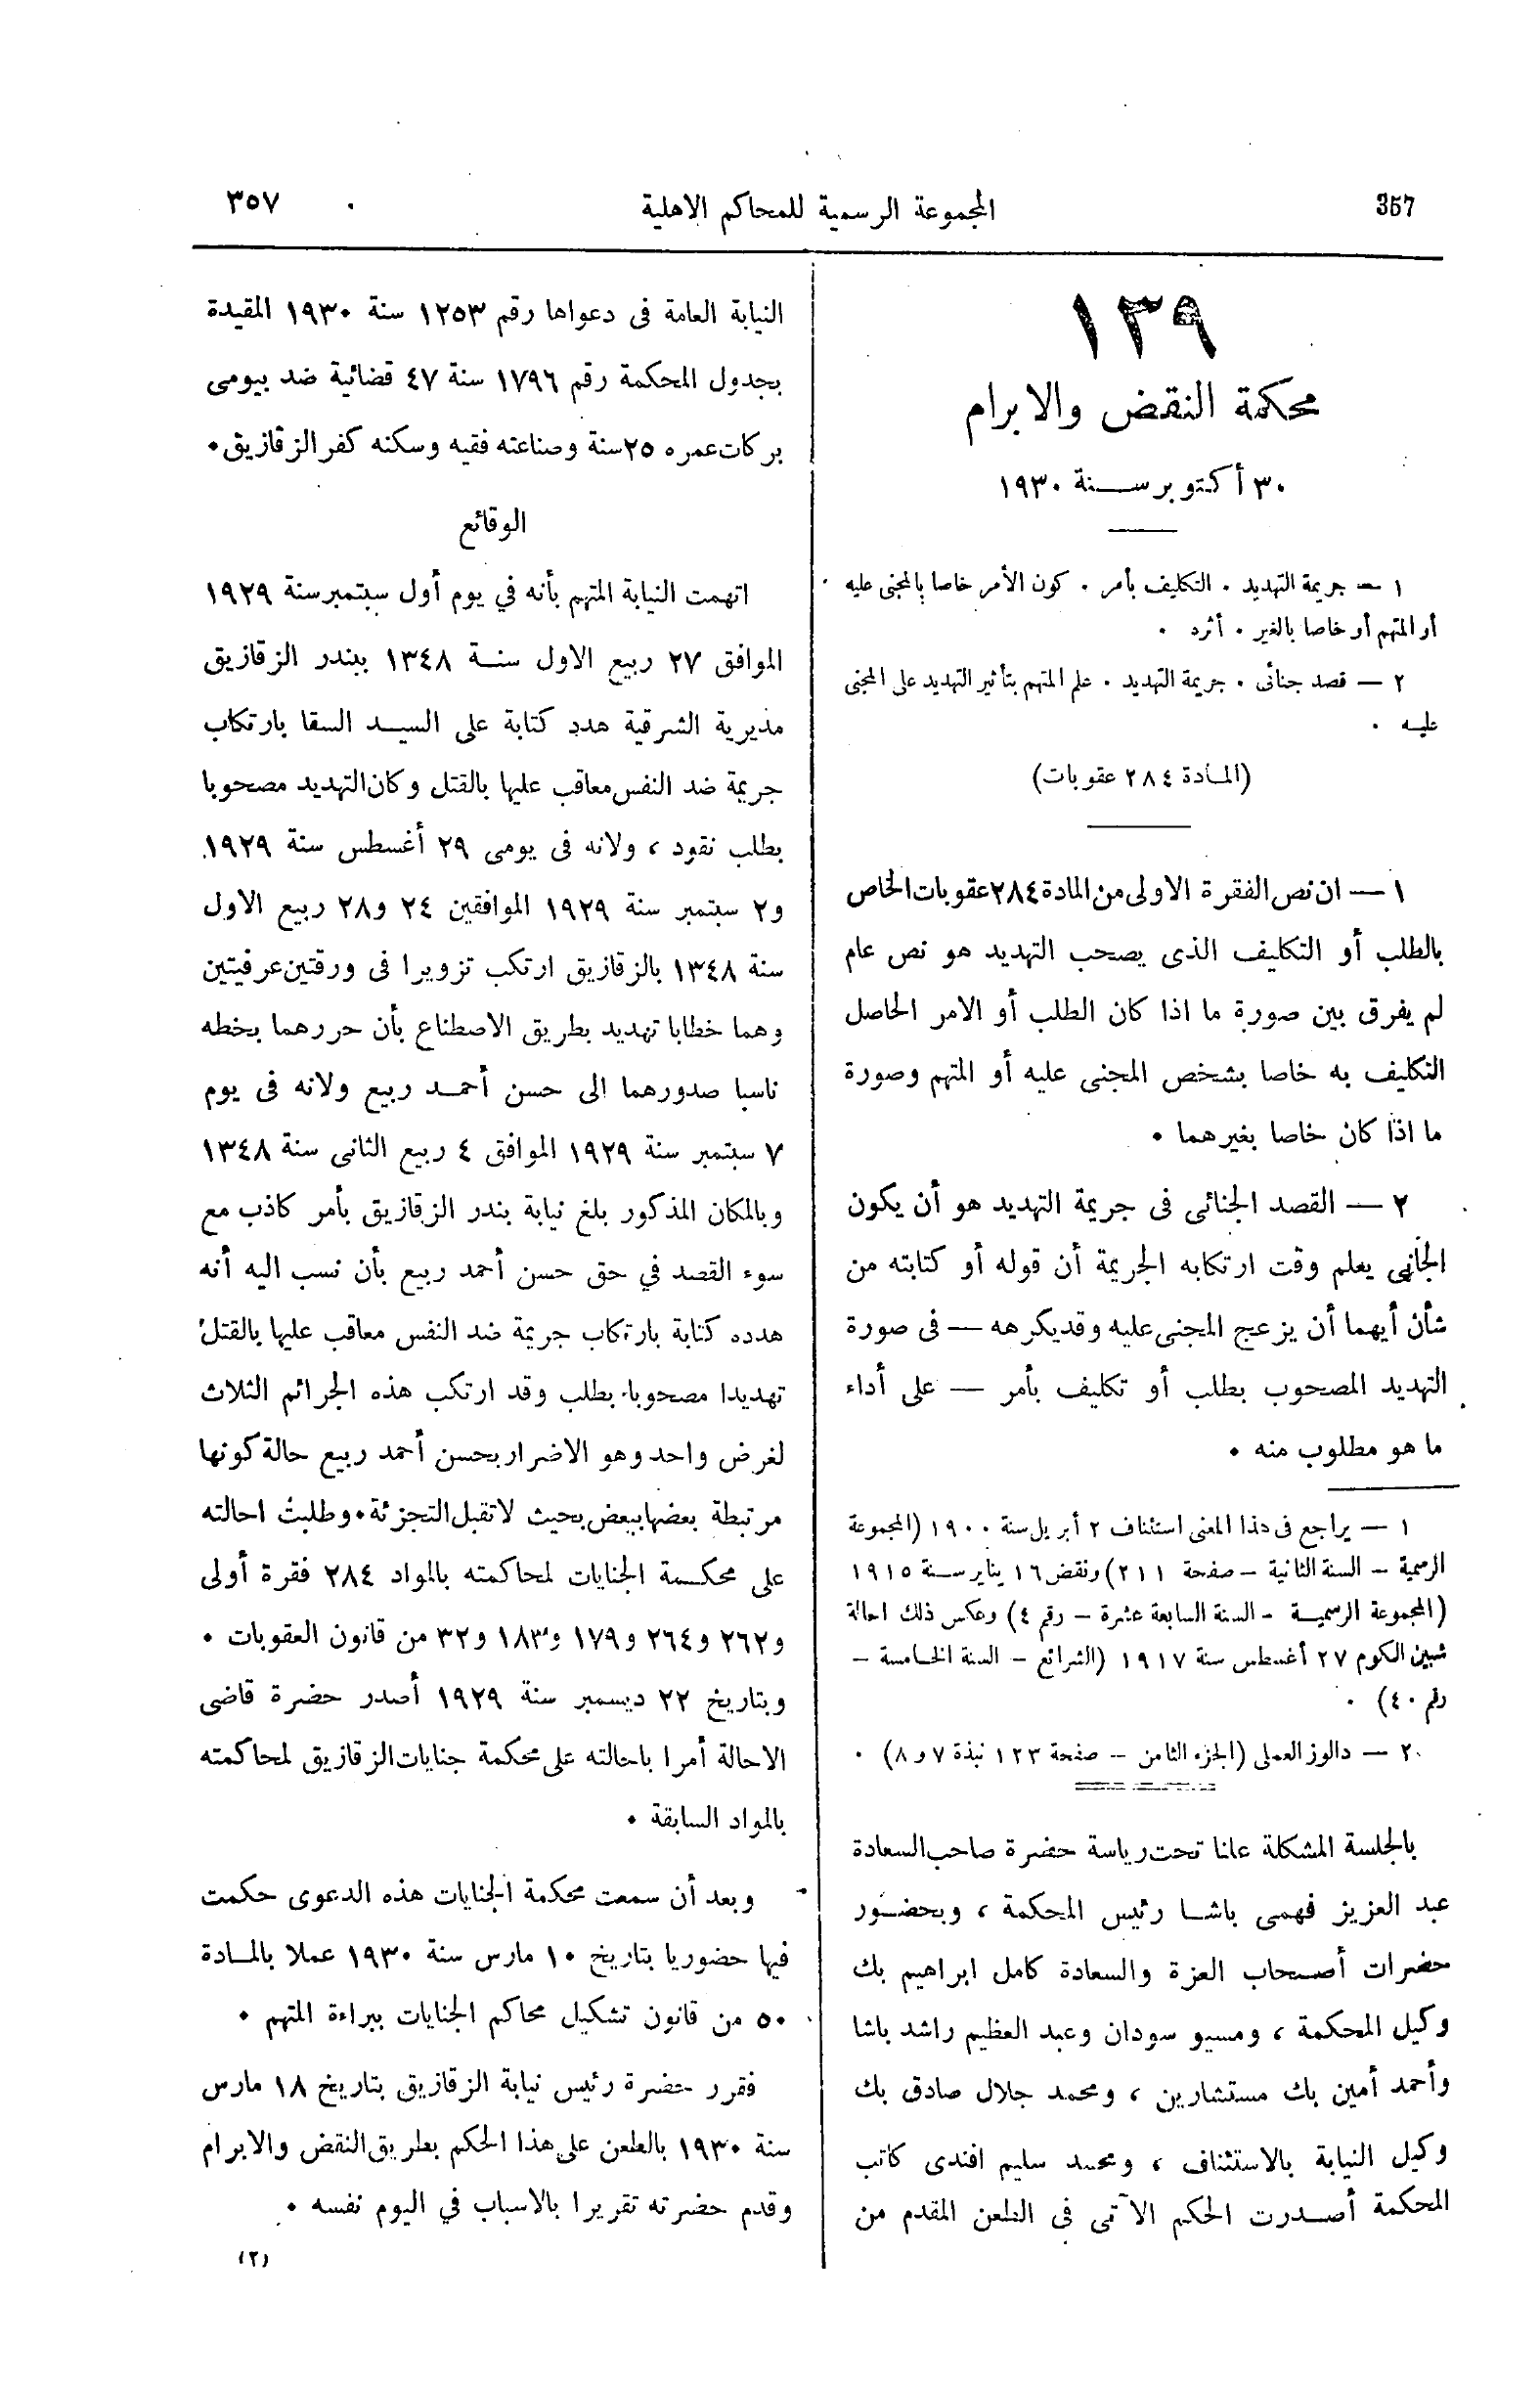 357
المجموعة الرسمية للمحاكم الاهلية
٣٥٧
١٣٩
محكمة النقض والابرام
٣٠ أكتوبر سنة ١٩٣٠
١ — جريمة التهديد . التكليف بأمر . كون الأمر خاصا بالمجنى عليه
أو المتهم أو خاصا بالغير . أثره .
٢ — قصد جنائى . جريمة التهديد . علم المتهم بتأثير التهديد على المجنى
عليه .
(المادة ٢٨٤ عقوبات)
١ — ان نص الفقرة الاولى من المادة ٢٨٤ عقوبات الخاص
بالطلب أو التكليف الذى يصحب التهديد هو نص عام
لم يفرق بين صورة ما اذا كان الطلب أو الامر الحاصل
التكليف به خاصا بشخص المجنى عليه أو المتهم وصورة
ما اذا كان خاصا بغيرهما .
٢ — القصد الجنائى فى جريمة التهديد هو أن يكون
الجانى يعلم وقت ارتكابه الجريمة أن قوله أو كتابته من
شأن أيهما أن يزعج المجنى عليه وقد يكرهه — فى صورة
التهديد المصحوب بطلب أو تكليف بأمر — على أداء
ما هو مطلوب منه .
١ — يراجع فى هذا المعنى استئناف ٢ أبريل سنة ١٩٠٠ (المجموعة
الرسمية — السنة الثانية — صفحة ٢١١) ونقض ١٦ يناير سنة ١٩١٥
(المجموعة الرسمية — السنة السابعة عشرة — رقم ٤) وعكس ذلك احالة
شبين الكوم ٢٧ أغسطس سنة ١٩١٧ (الشرائع — السنة الخامسة —
رقم ٤٠) .
٢ — دالوز العملى (الجزء الثامن — صفحة ١٢٣ نبذة ٧ و ٨) .
بالجلسة المشكلة علنا تحت رياسة حضرة صاحب السعادة
عبد العزيز فهمى باشا رئيس المحكمة ، وبحضور
حضرات أصحاب العزة والسعادة كامل ابراهيم بك
وكيل المحكمة ، ومسيو سودان وعبد العظيم راشد باشا
وأحمد أمين بك مستشارين ، ومحمد جلال صادق بك
وكيل النيابة بالاستئناف ، ومحمد سليم افندى كاتب
المحكمة أصدرت الحكم الآتى فى الطعن المقدم من
النيابة العامة فى دعواها رقم ١٢٥٣ سنة ١٩٣٠ المقيدة
بجدول المحكمة رقم ١٧٩٦ سنة ٤٧ قضائية ضد بيومى
بركات عمره ٢٥ سنة وصناعته فقيه وسكنه كفر الزقازيق .
الوقائع
اتهمت النيابة المتهم بأنه في يوم أول سبتمبر سنة ١٩٢٩
الموافق ٢٧ ربيع الاول سنة ١٣٤٨ ببندر الزقازيق
مديرية الشرقية هدد كتابة على السيد السقا بارتكاب
جريمة ضد النفس معاقب عليها بالقتل وكان التهديد مصحوبا
بطلب نقود ، ولانه فى يومى ٢٩ أغسطس سنة ١٩٢٩
و٢ سبتمبر سنة ١٩٢٩ الموافقين ٢٤ و٢٨ ربيع الاول
سنة ١٣٤٨ بالزقازيق ارتكب تزويرا فى ورقتين عرفيتين
وهما خطابا تهديد بطريق الاصطناع بأن حررهما بخطه
ناسبا صدورهما الى حسن أحمد ربيع ولانه فى يوم
٧ سبتمبر سنة ١٩٢٩ الموافق ٤ ربيع الثانى سنة ١٣٤٨
وبالمكان المذكور بلغ نيابة بندر الزقازيق بأمر كاذب مع
سوء القصد في حق حسن أحمد ربيع بأن نسب اليه أنه
هدده كتابة بارتكاب جريمة ضد النفس معاقب عليها بالقتل
تهديدا مصحوبا بطلب وقد ارتكب هذه الجرائم الثلاث
لغرض واحد وهو الاضرار بحسن أحمد ربيع حالة كونها
مرتبطة بعضها ببعض بحيث لا تقبل التجزئة . وطلبت احالته
على محكمة الجنايات لمحاكمته بالمواد ٢٨٤ فقرة أولى
و٢٦٢ و٢٦٤ و١٧٩ و١٨٣ و٣٢ من قانون العقوبات .
وبتاريخ ٢٢ ديسمبر سنة ١٩٢٩ أصدر حضرة قاضى
الاحالة أمرا باحالته على محكمة جنايات الزقازيق لمحاكمته
بالمواد السابقة .
وبعد أن سمعت محكمة الجنايات هذه الدعوى حكمت
فيها حضوريا بتاريخ ١٠ مارس سنة ١٩٣٠ عملا بالمادة
٥٠ من قانون تشكيل محاكم الجنايات ببراءة المتهم .
فقرر حضرة رئيس نيابة الزقازيق بتاريخ ١٨ مارس
سنة ١٩٣٠ بالطعن على هذا الحكم بطريق النقض والابرام
وقدم حضرته تقريرا بالاسباب في اليوم نفسه .
(٢)